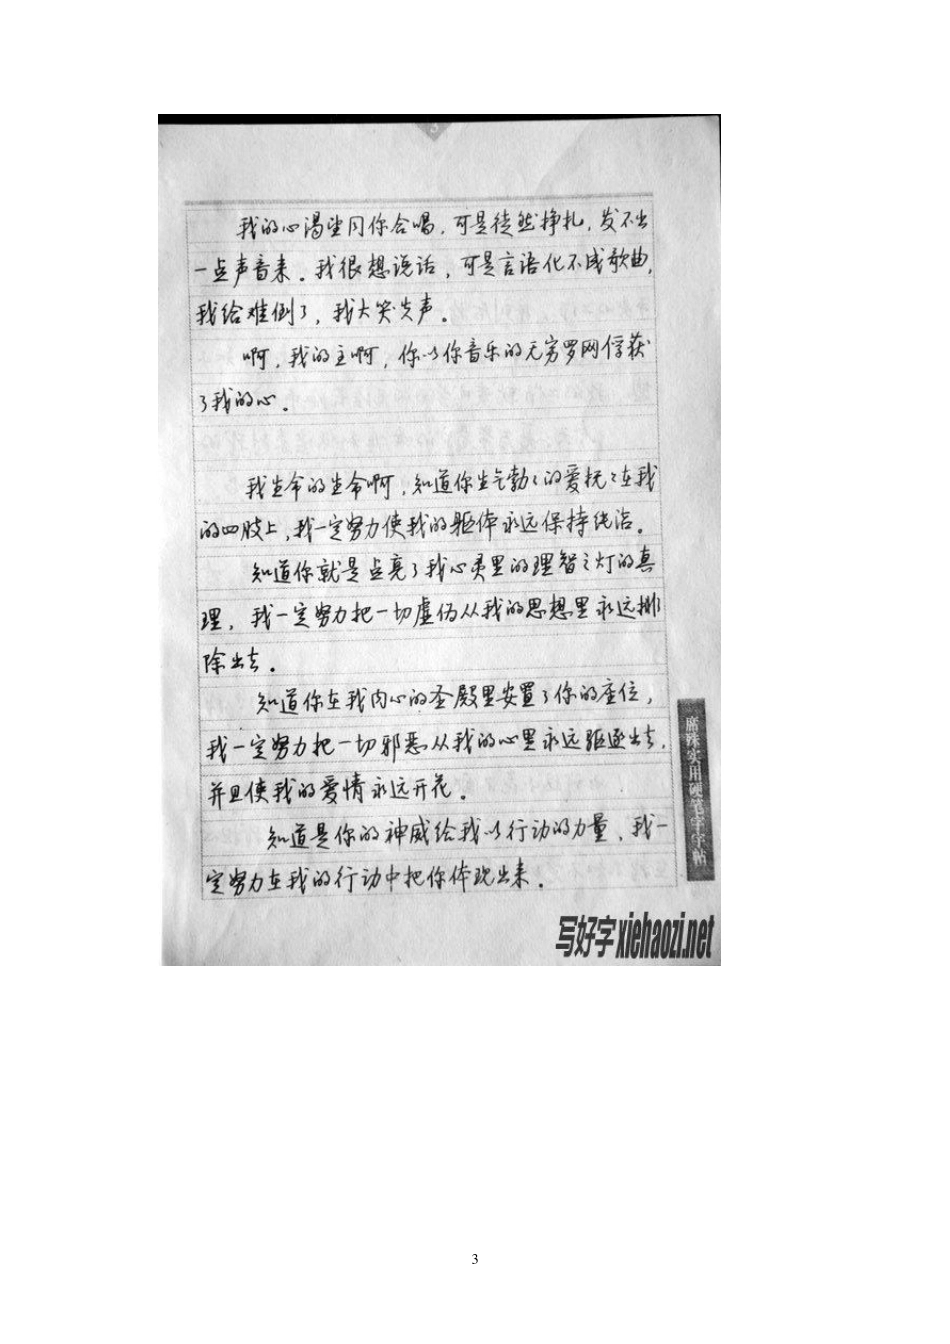 我的心渴望同你合唱，可是徒然挣扎，发不出
一点声音来。我很想说话，可是言语化不成歌曲，
我给难倒了，我大哭失声。
啊，我的主啊，你以你音乐的无穷罗网俘获
了我的心。
我生命的生命啊，知道你生气勃々的爱抚々在我
的四肢上，我一定努力使我的躯体永远保持纯洁。
知道你就是点亮了我心灵里的理智之灯的真
理，我一定努力把一切虚伪从我的思想里永远排
除出去。
知道你在我内心的圣殿里安置了你的座位，
我一定努力把一切邪恶从我的心里永远驱逐出去，
并且使我的爱情永远开花。
知道是你的神威给我以行动的力量，我一
定努力在我的行动中把你体现出来。
席殊实用硬笔字字帖
写好字xiehaozi.net
3